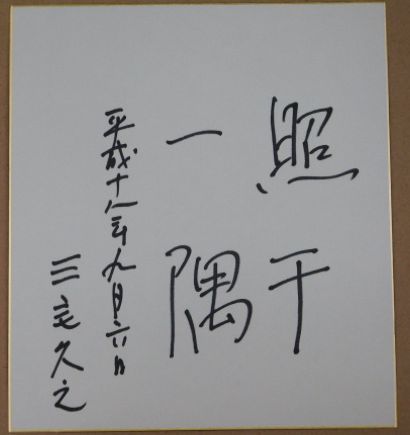 照于
一隅
平成十八年九月六日
三宅久之